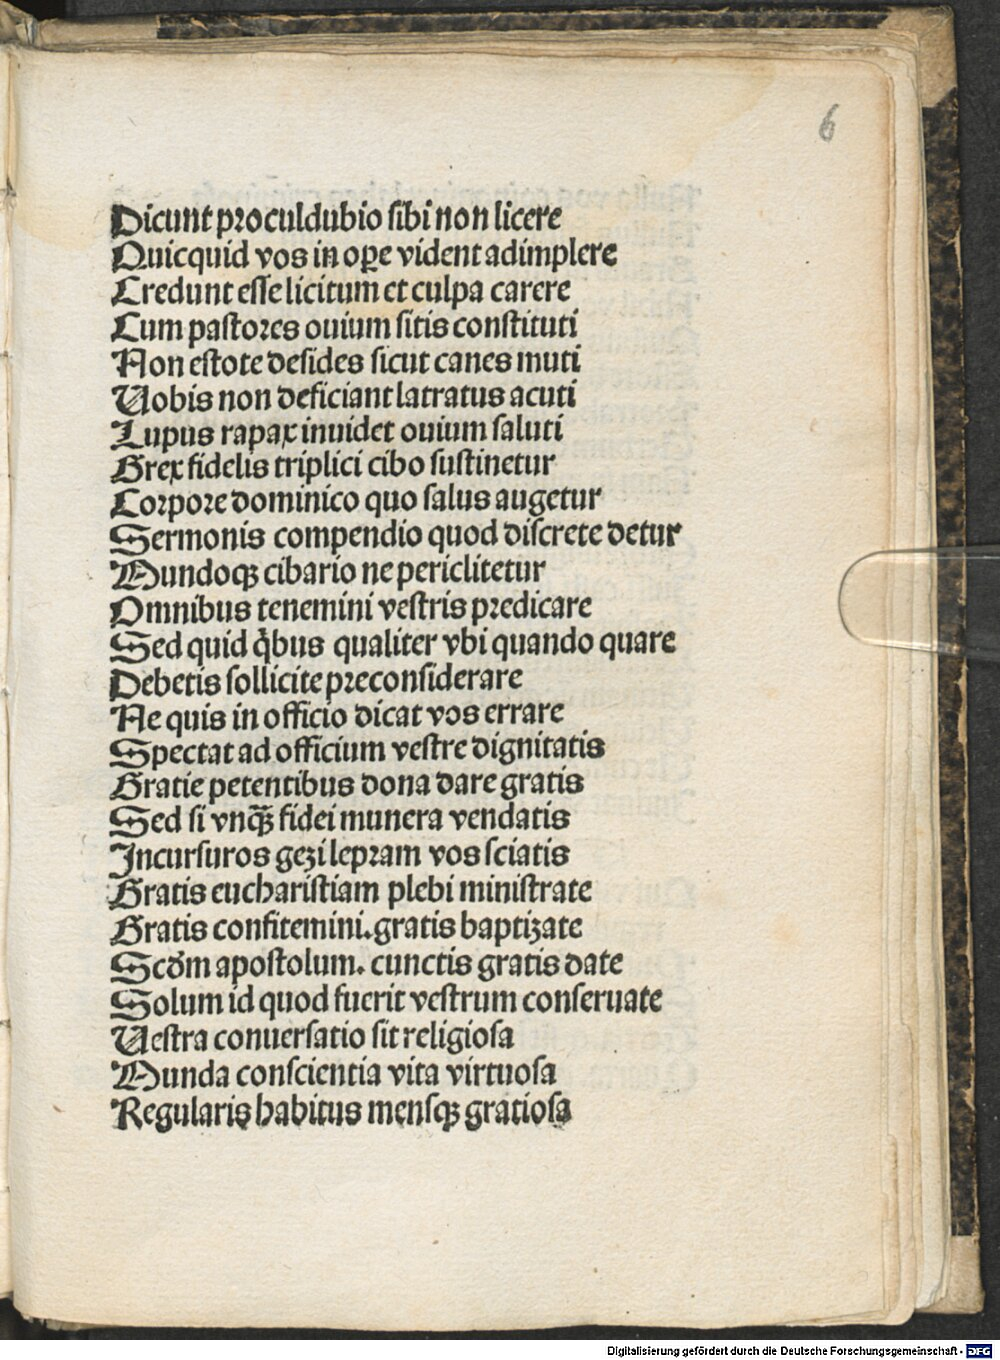 6
Dicunt proculdubio sibi non licere
Quicquid vos in oꝑe vident adimplere
Credunt esse licitum et culpa carere
Cum pastores ouium sitis constituti
Non estote desides sicut canes muti
Uobis non deficiant latratus acuti
Lupus rapax inuidet ouium saluti
Grex fidelis triplici cibo sustinetur
Corpore dominico quo salus augetur
Sermonis compendio quod discrete detur
Mundoqꝫ cibario ne periclitetur
Omnibus tenemini vestris predicare
Sed quid q̇bus qualiter vbi quando quare
Debetis sollicite preconsiderare
Ne quis in officio dicat vos errare
Spectat ad officium vestre dignitatis
Gratie petentibus dona dare gratis
Sed si vnqꝫ̃ fidei munera vendatis
Incursuros gezi lepram vos sciatis
Gratis eucharistiam plebi ministrate
Gratis confitemini.gratis baptizate
Scd̕m apostolum. cunctis gratis date
Solum id quod fuerit vestrum conseruate
Uestra conuersatio sit religiosa
Munda conscientia vita virtuosa
Regularis habitus mensqꝫ gratiosa
Digitalisierung gefördert durch die Deutsche Forschungsgemeinschaft - DFG